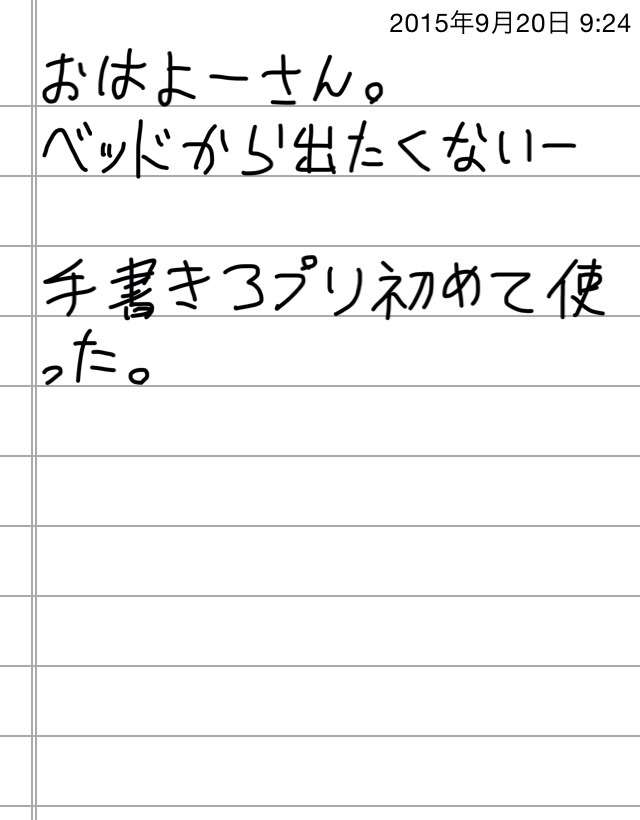 2015年9月20日 9:24
おはよーさん。
ベッドから出たくないー
手書きアプリ初めて使
った。